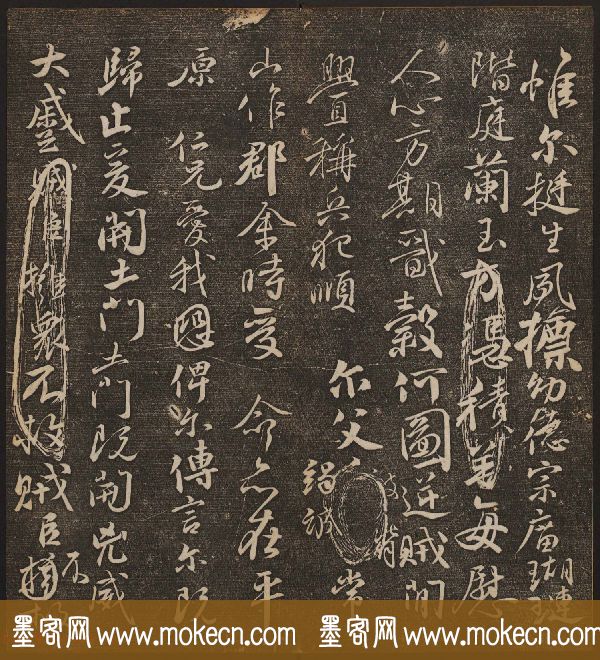 惟尔挺生夙摽幼德宗廟瑚璉
階庭蘭玉方憑積善每慰
人心方期戩穀何圖逆賊閒
舋稱兵犯順 尔父竭誠常
山作郡余時受 命亦在平
原仁兄愛我恩俾尔傳言尔既
歸止爰開土門土門既開凶威
大蹙賊臣擁衆不救賊臣不擁
墨客网 www.mokecn.com 墨客网 www.mokecn.com